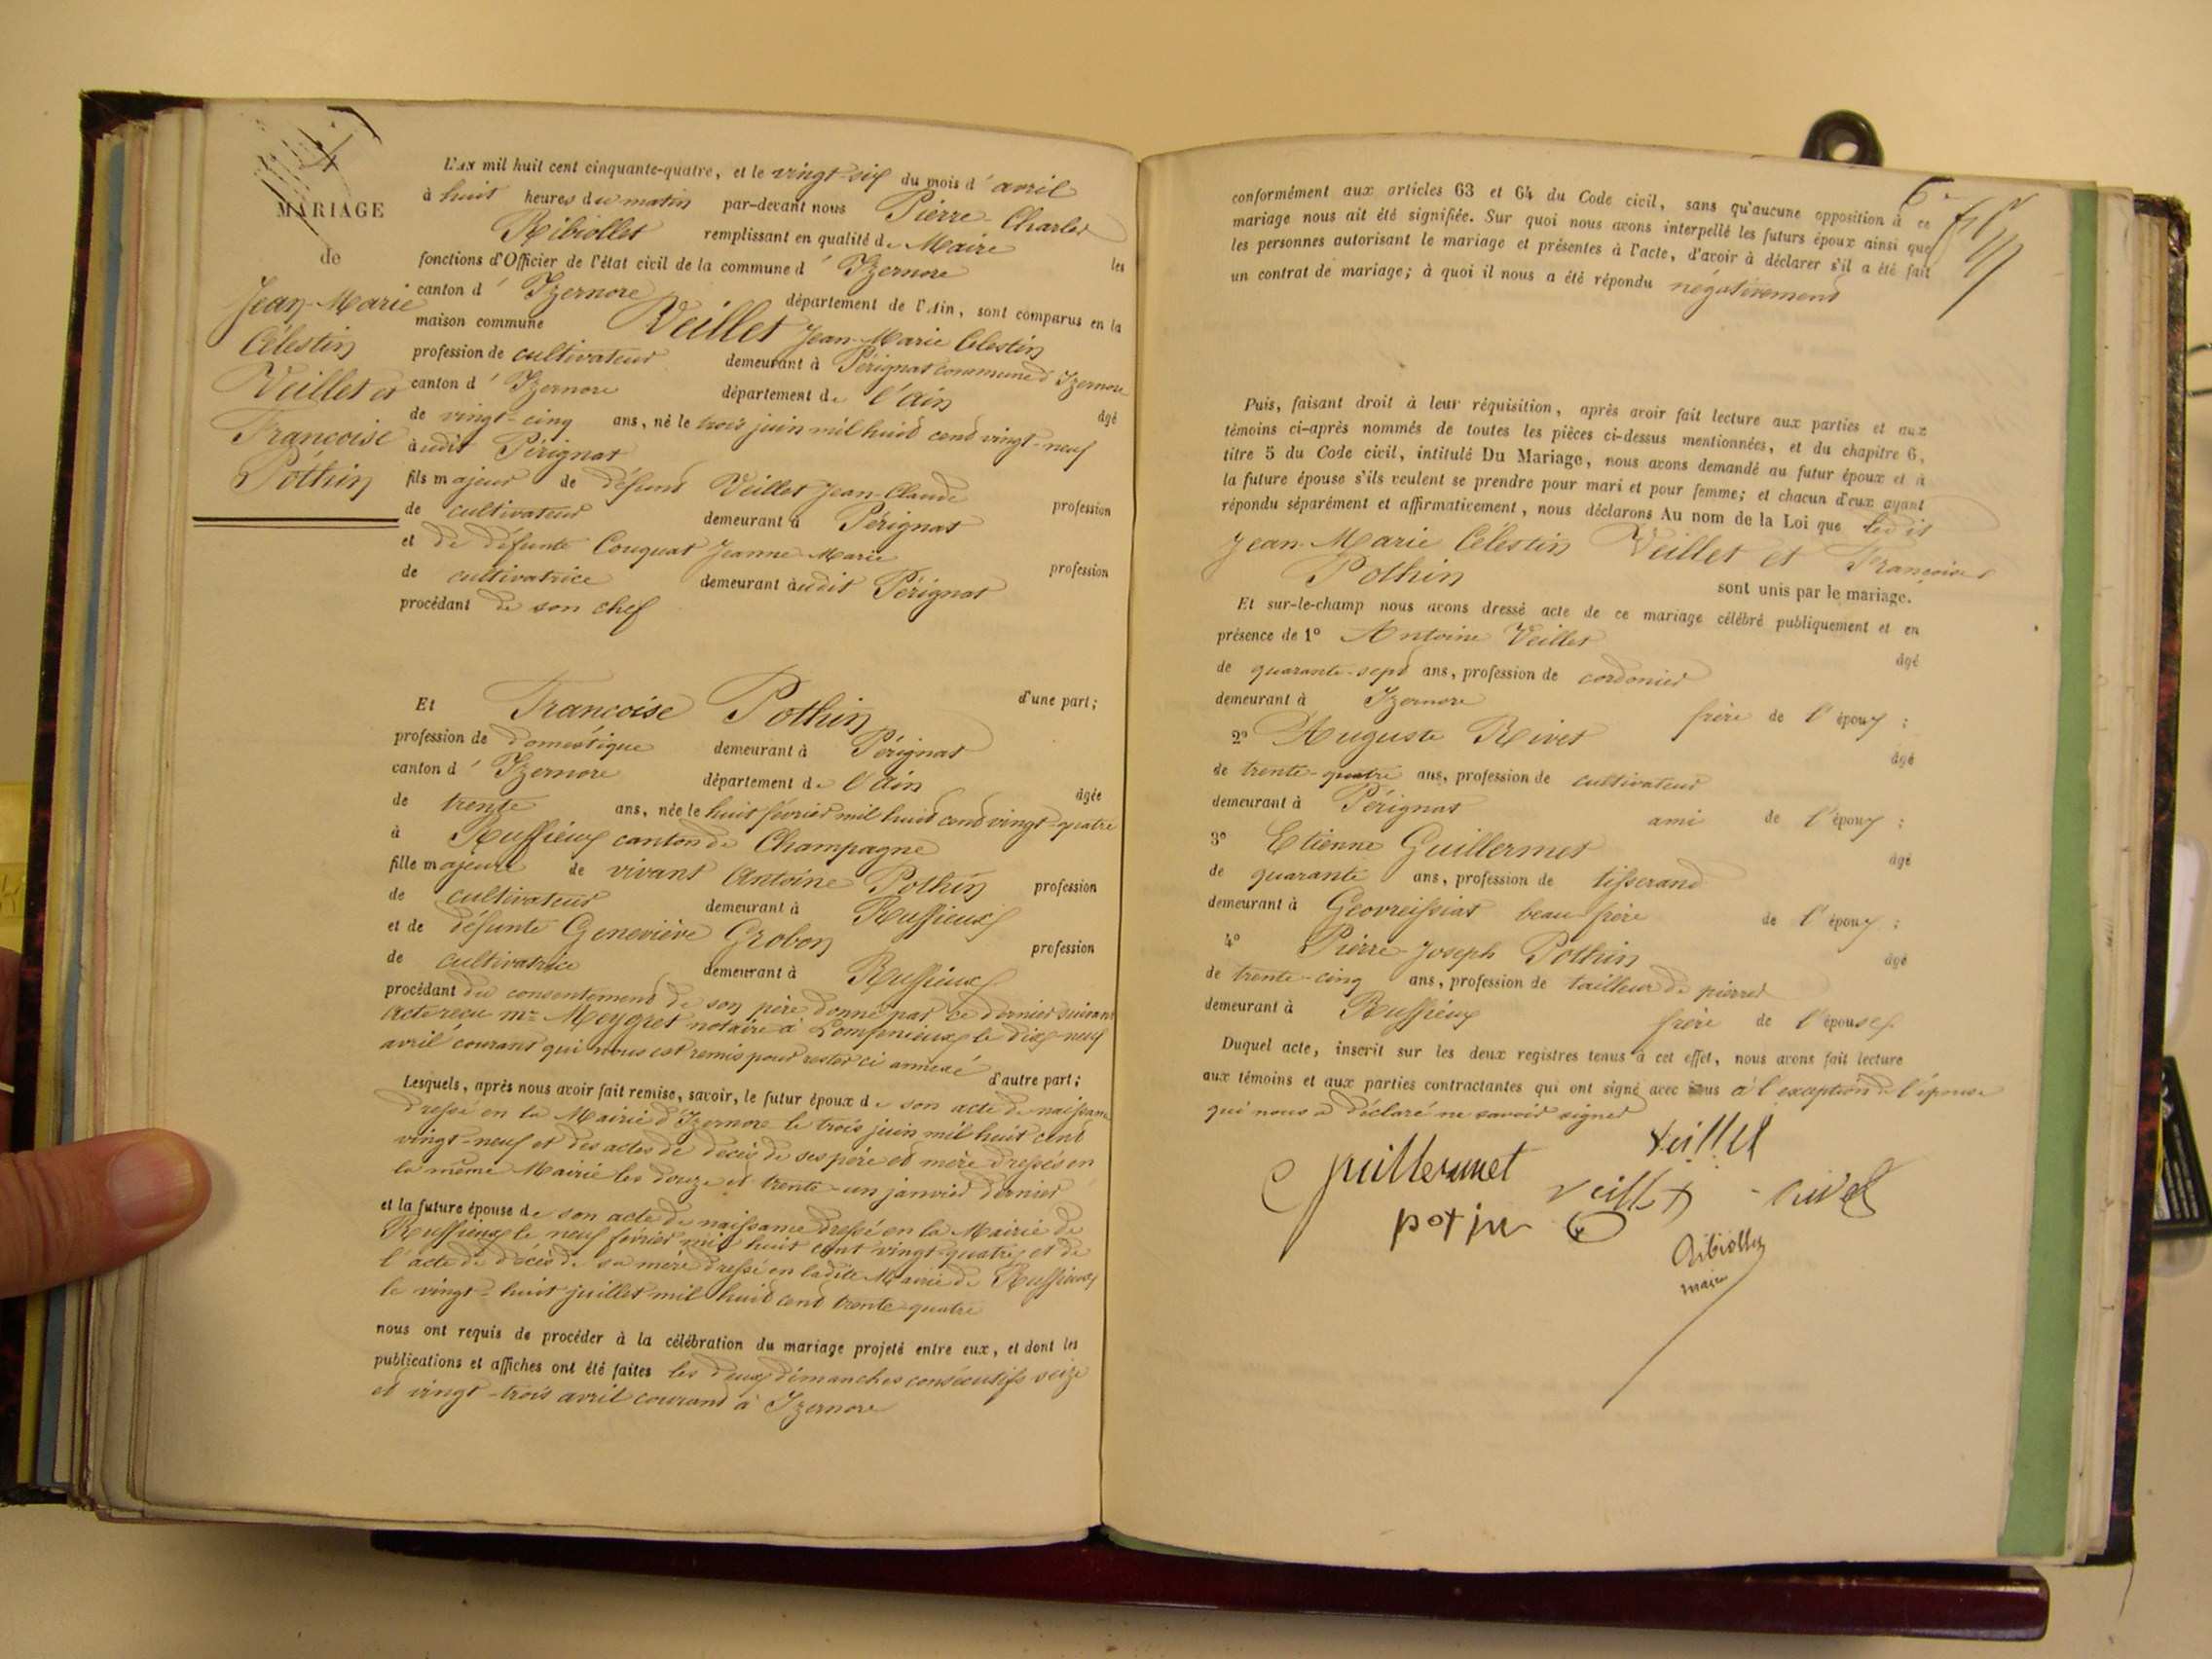 MARIAGE
de
Jean-Marie
Célestin
Veillet et
Françoise
Pothin
L'AN mil huit cent cinquante-quatre, et le vingt-six du mois d'avril
à huit heures du matin par-devant nous Pierre Charles
Ribiollet remplissant en qualité de Maire les
fonctions d'Officier de l'état civil de la commune d'Izernore
canton d'Izernore département de l'Ain, sont comparus en la
maison commune Veillet Jean-Marie Célestin
profession de cultivateur demeurant à Pérignat commune d'Izernore
canton d'Izernore département de l'Ain âgé
de vingt-cinq ans, né le trois juin mil huit cent vingt-neuf
audit Pérignat
fils majeur de défunt Veillet Jean-Claude profession
de cultivateur demeurant à Pérignat
et de défunte Couquat Jeanne-Marie profession
de cultivatrice demeurant audit Pérignat
procédant de son chef
d'une part;
Et Françoise Pothin
profession de domestique demeurant à Pérignat
canton d'Izernore département de l'Ain âgée
de trente ans, née le huit février mil huit cent vingt-quatre
à Ruffieux canton de Champagne
fille majeure de vivant Antoine Pothin profession
de cultivateur demeurant à Ruffieux
et de défunte Geneviève Grobon profession
de cultivatrice demeurant à Ruffieux
procédant du consentement de son père donné par ce dernier suivant
acte reçu mre Meygret notaire à Lompnieux le dix-neuf
avril courant qui nous est remis pour rester ci annexé
d'autre part;
Lesquels, après nous avoir fait remise, savoir, le futur époux de son acte de naissance
dressé en la Mairie d'Izernore le trois juin mil huit cent
vingt-neuf et des actes de décès de ses père et mère dressés en
la même Mairie les douze et trente-un janvier dernier
et la future épouse de son acte de naissance dressé en la Mairie de
Ruffieux le neuf février mil huit cent vingt-quatre, et de
l'acte de décès de sa mère dressé en ladite Mairie de Ruffieux
le vingt-huit juillet mil huit cent trente-quatre
nous ont requis de procéder à la célébration du mariage projeté entre eux, et dont les
publications et affiches ont été faites les deux dimanches consécutifs seize
et vingt-trois avril courant à Izernore
conformément aux articles 63 et 64 du Code civil, sans qu'aucune opposition à ce
mariage nous ait été signifiée. Sur quoi nous avons interpellé les futurs époux ainsi que
les personnes autorisant le mariage et présentes à l'acte, d'avoir à déclarer s'il a été fait
un contrat de mariage; à quoi il nous a été répondu négativement
Puis, faisant droit à leur réquisition, après avoir fait lecture aux parties et aux
témoins ci-après nommés de toutes les pièces ci-dessus mentionnées, et du chapitre 6,
titre 5 du Code civil, intitulé Du Mariage, nous avons demandé au futur époux et à
la future épouse s'ils veulent se prendre pour mari et pour femme; et chacun d'eux ayant
répondu séparément et affirmativement, nous déclarons Au nom de la Loi que
Jean-Marie Célestin Veillet et Françoise
Pothin sont unis par le mariage.
Et sur-le-champ nous avons dressé acte de ce mariage célébré publiquement et en
présence de 1º Antoine Veillet âgé
de quarante-sept ans, profession de cordonier
demeurant à Izernore frère de l'époux;
2º Auguste Rivet âgé
de trente-quatre ans, profession de cultivateur
demeurant à Pérignat ami de l'époux;
3º Etienne Guillermet âgé
de quarante ans, profession de tisserand
demeurant à Geovreissiat beau-frère de l'époux;
4º Pierre-Joseph Pothin âgé
de trente-cinq ans, profession de tailleur de pierres
demeurant à Ruffieux frère de l'épouse.
Duquel acte, inscrit sur les deux registres tenus à cet effet, nous avons fait lecture
aux témoins et aux parties contractantes qui ont signé avec nous à l'exception de l'épouse
qui nous a déclaré ne savoir signer
Guillermet veillet
veillet rivet
potin
Ribiollet
maire